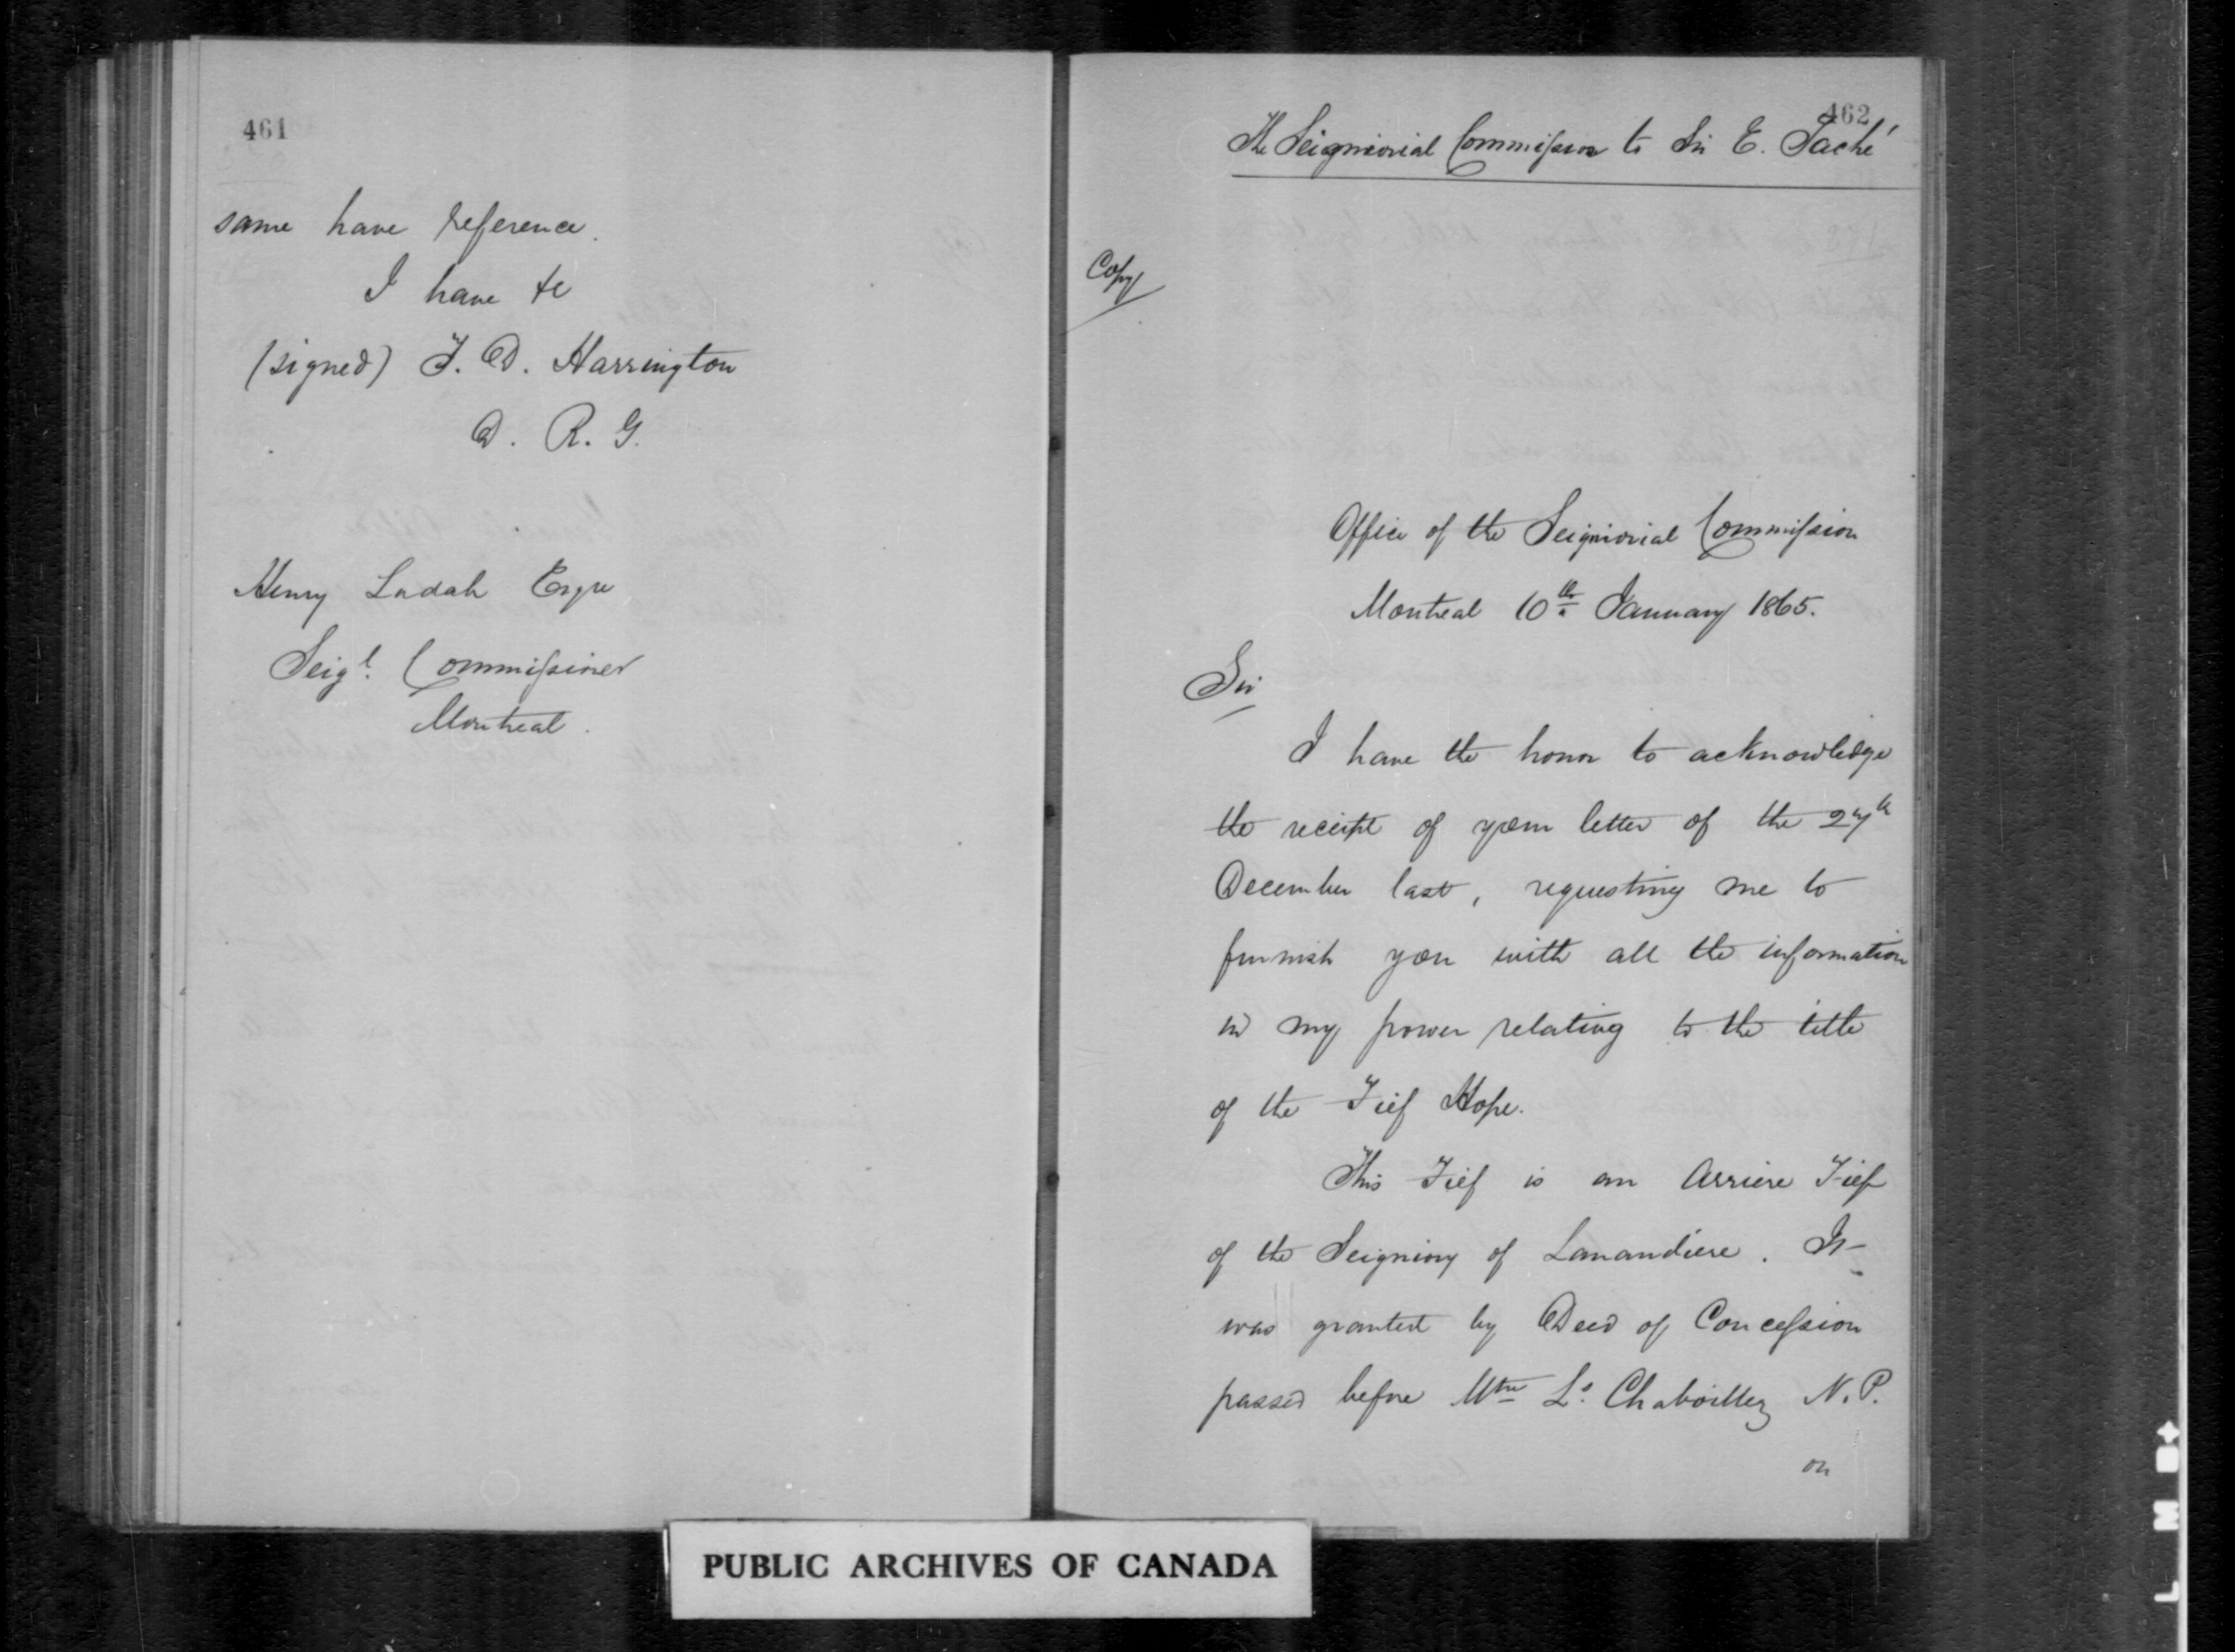 461
same have reference.
I have &c
(signed) T. D. Harrington
D. R. G.
Henry Judah Esqre
Seigl. Commissioner
Montreal.
462
The Seigniorial Commission to Sir E. Taché
Copy
Office of the Seigniorial Commission
Montreal 10th January 1865.
Sir
I have the honor to acknowledge
the receipt of your letter of the 27th
December last, requesting me to
furnish you with all the information
in my power relating to the title
of the Fief Hope.
This Fief is an Arriere Fief
of the Seigniory of Lanaudiere. It
was granted by Deed of Concession
passed before Mtre Ls. Chaboillez N.P.
on
PUBLIC ARCHIVES OF CANADA